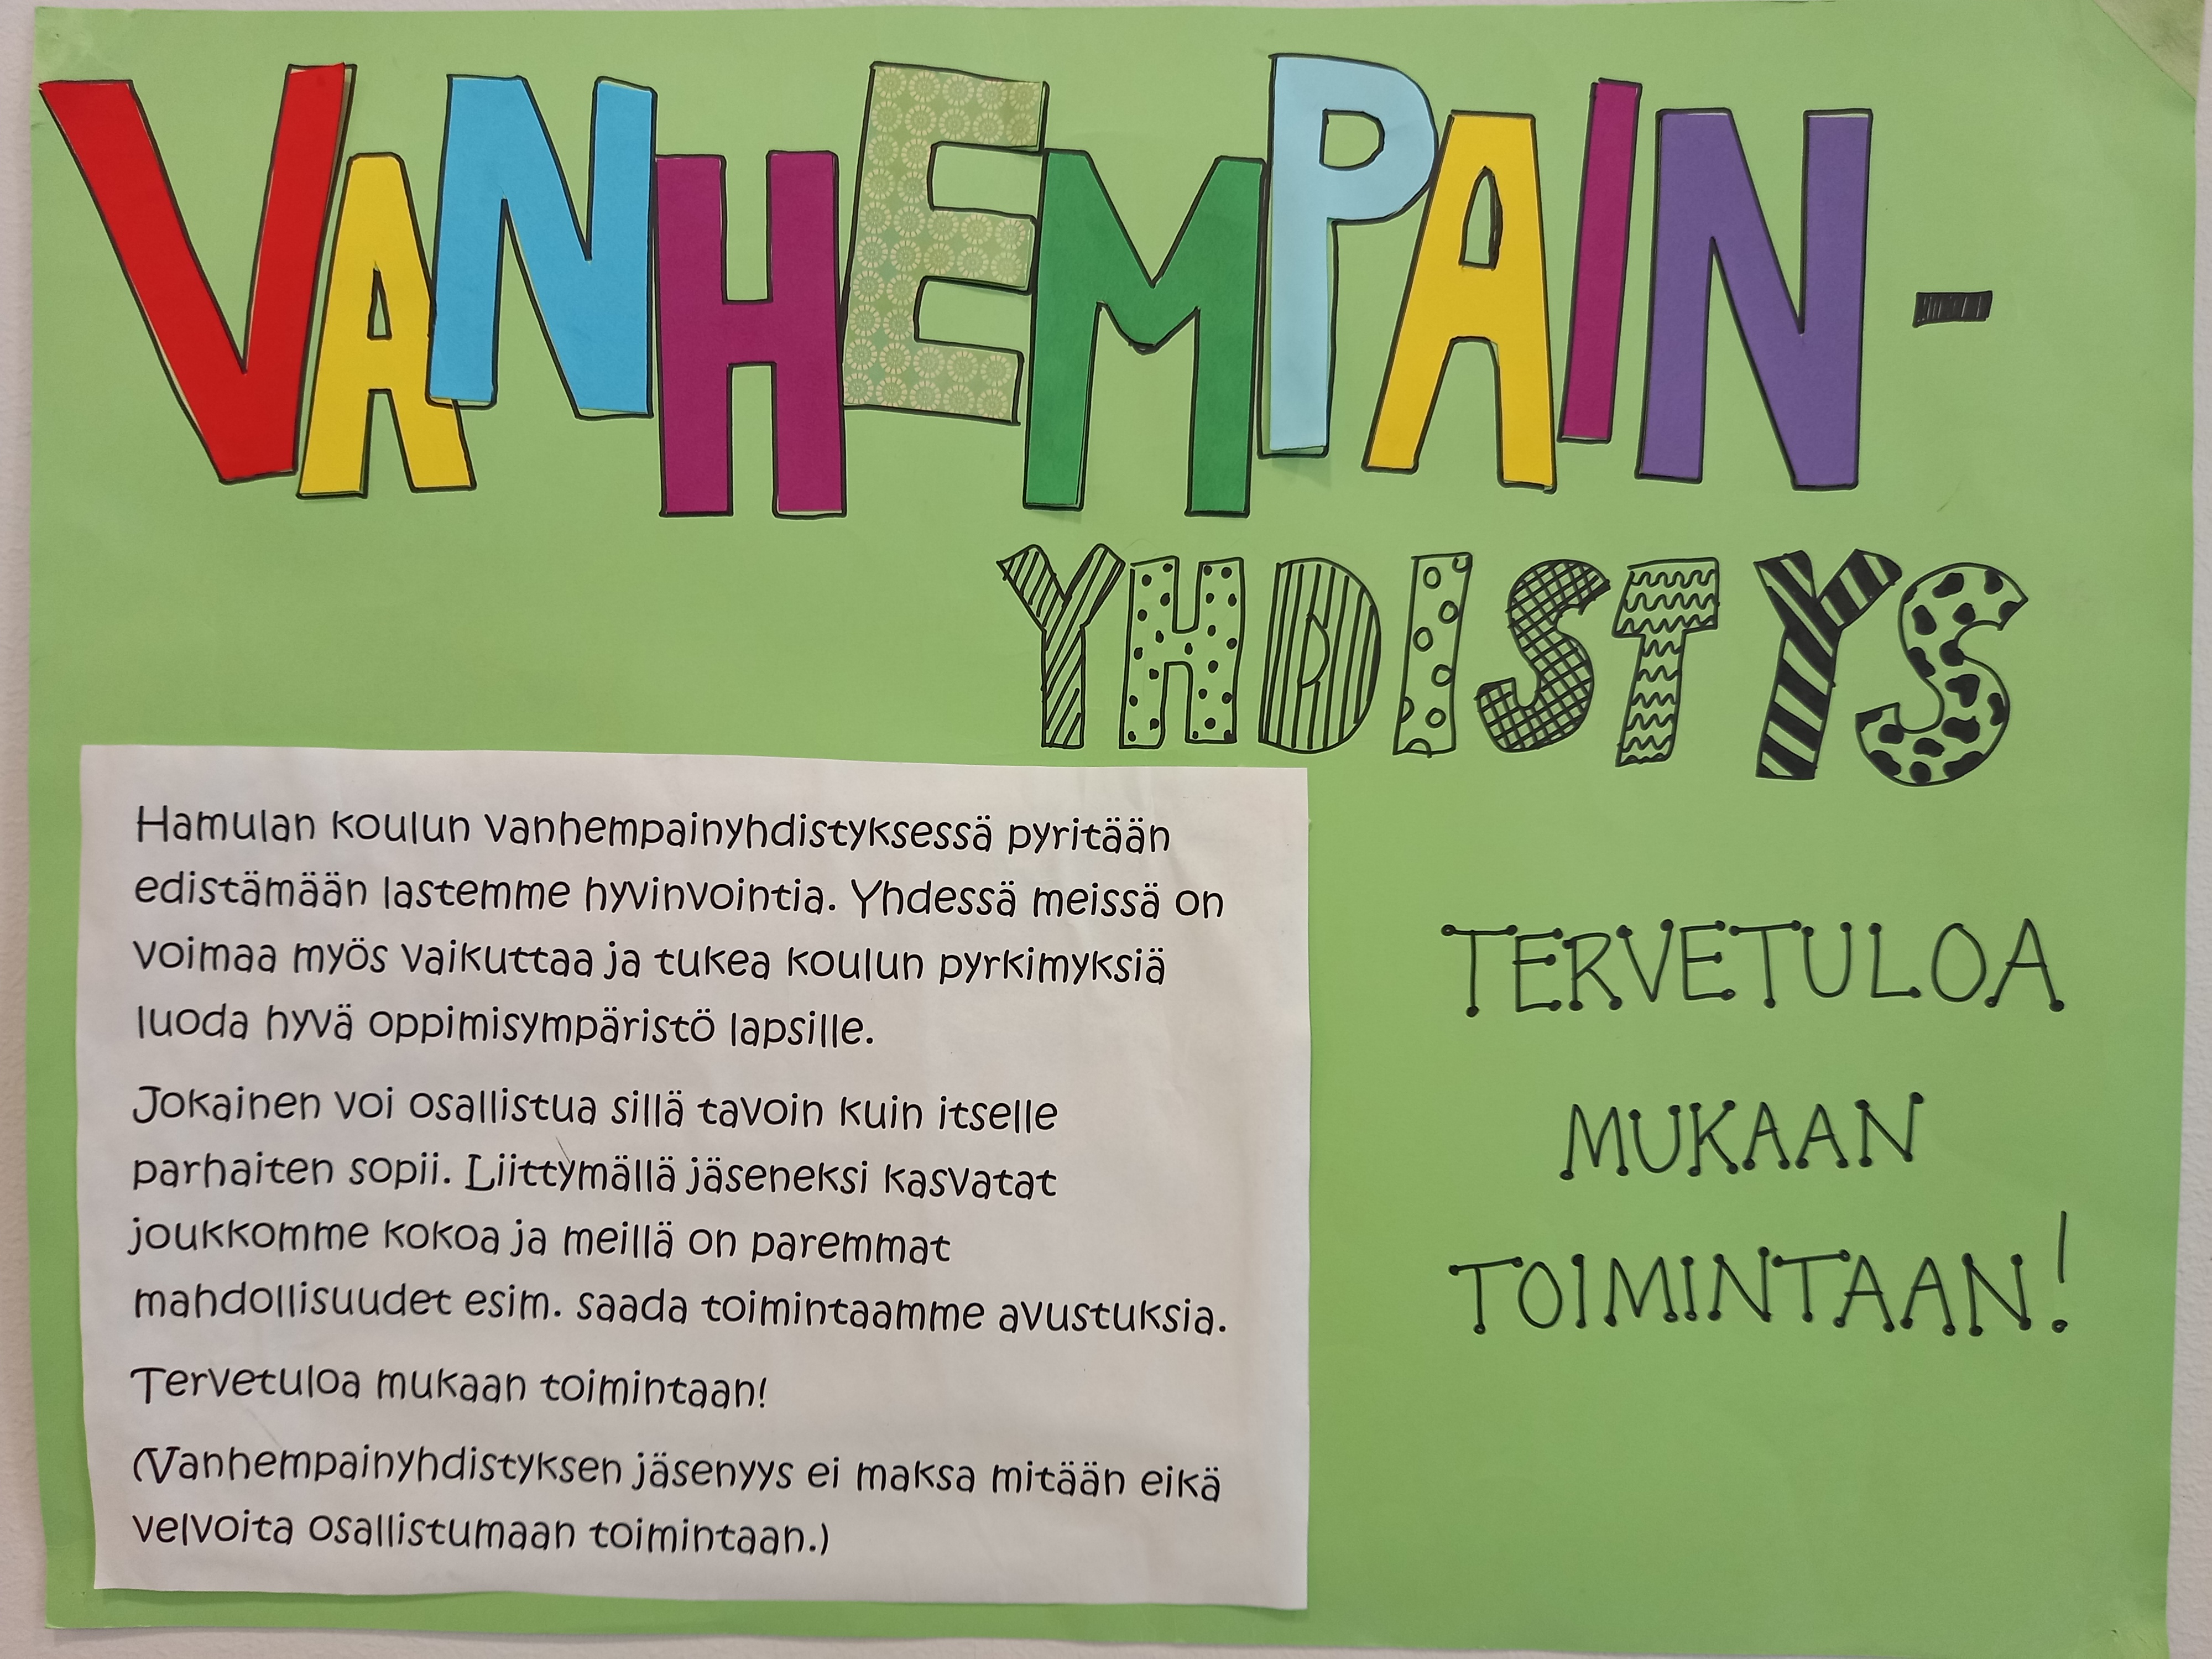 VANHEMPAIN-
YHDISTYS
Hamulan koulun vanhempainyhdistyksessä pyritään
edistämään lastemme hyvinvointia. Yhdessä meissä on
voimaa myös vaikuttaa ja tukea koulun pyrkimyksiä
luoda hyvä oppimisympäristö lapsille.
Jokainen voi osallistua sillä tavoin kuin itselle
parhaiten sopii. Liittymällä jäseneksi kasvatat
joukkomme kokoa ja meillä on paremmat
mahdollisuudet esim. saada toimintaamme avustuksia.
Tervetuloa mukaan toimintaan!
(Vanhempainyhdistyksen jäsenyys ei maksa mitään eikä
velvoita osallistumaan toimintaan.)
TERVETULOA
MUKAAN
TOIMINTAAN!